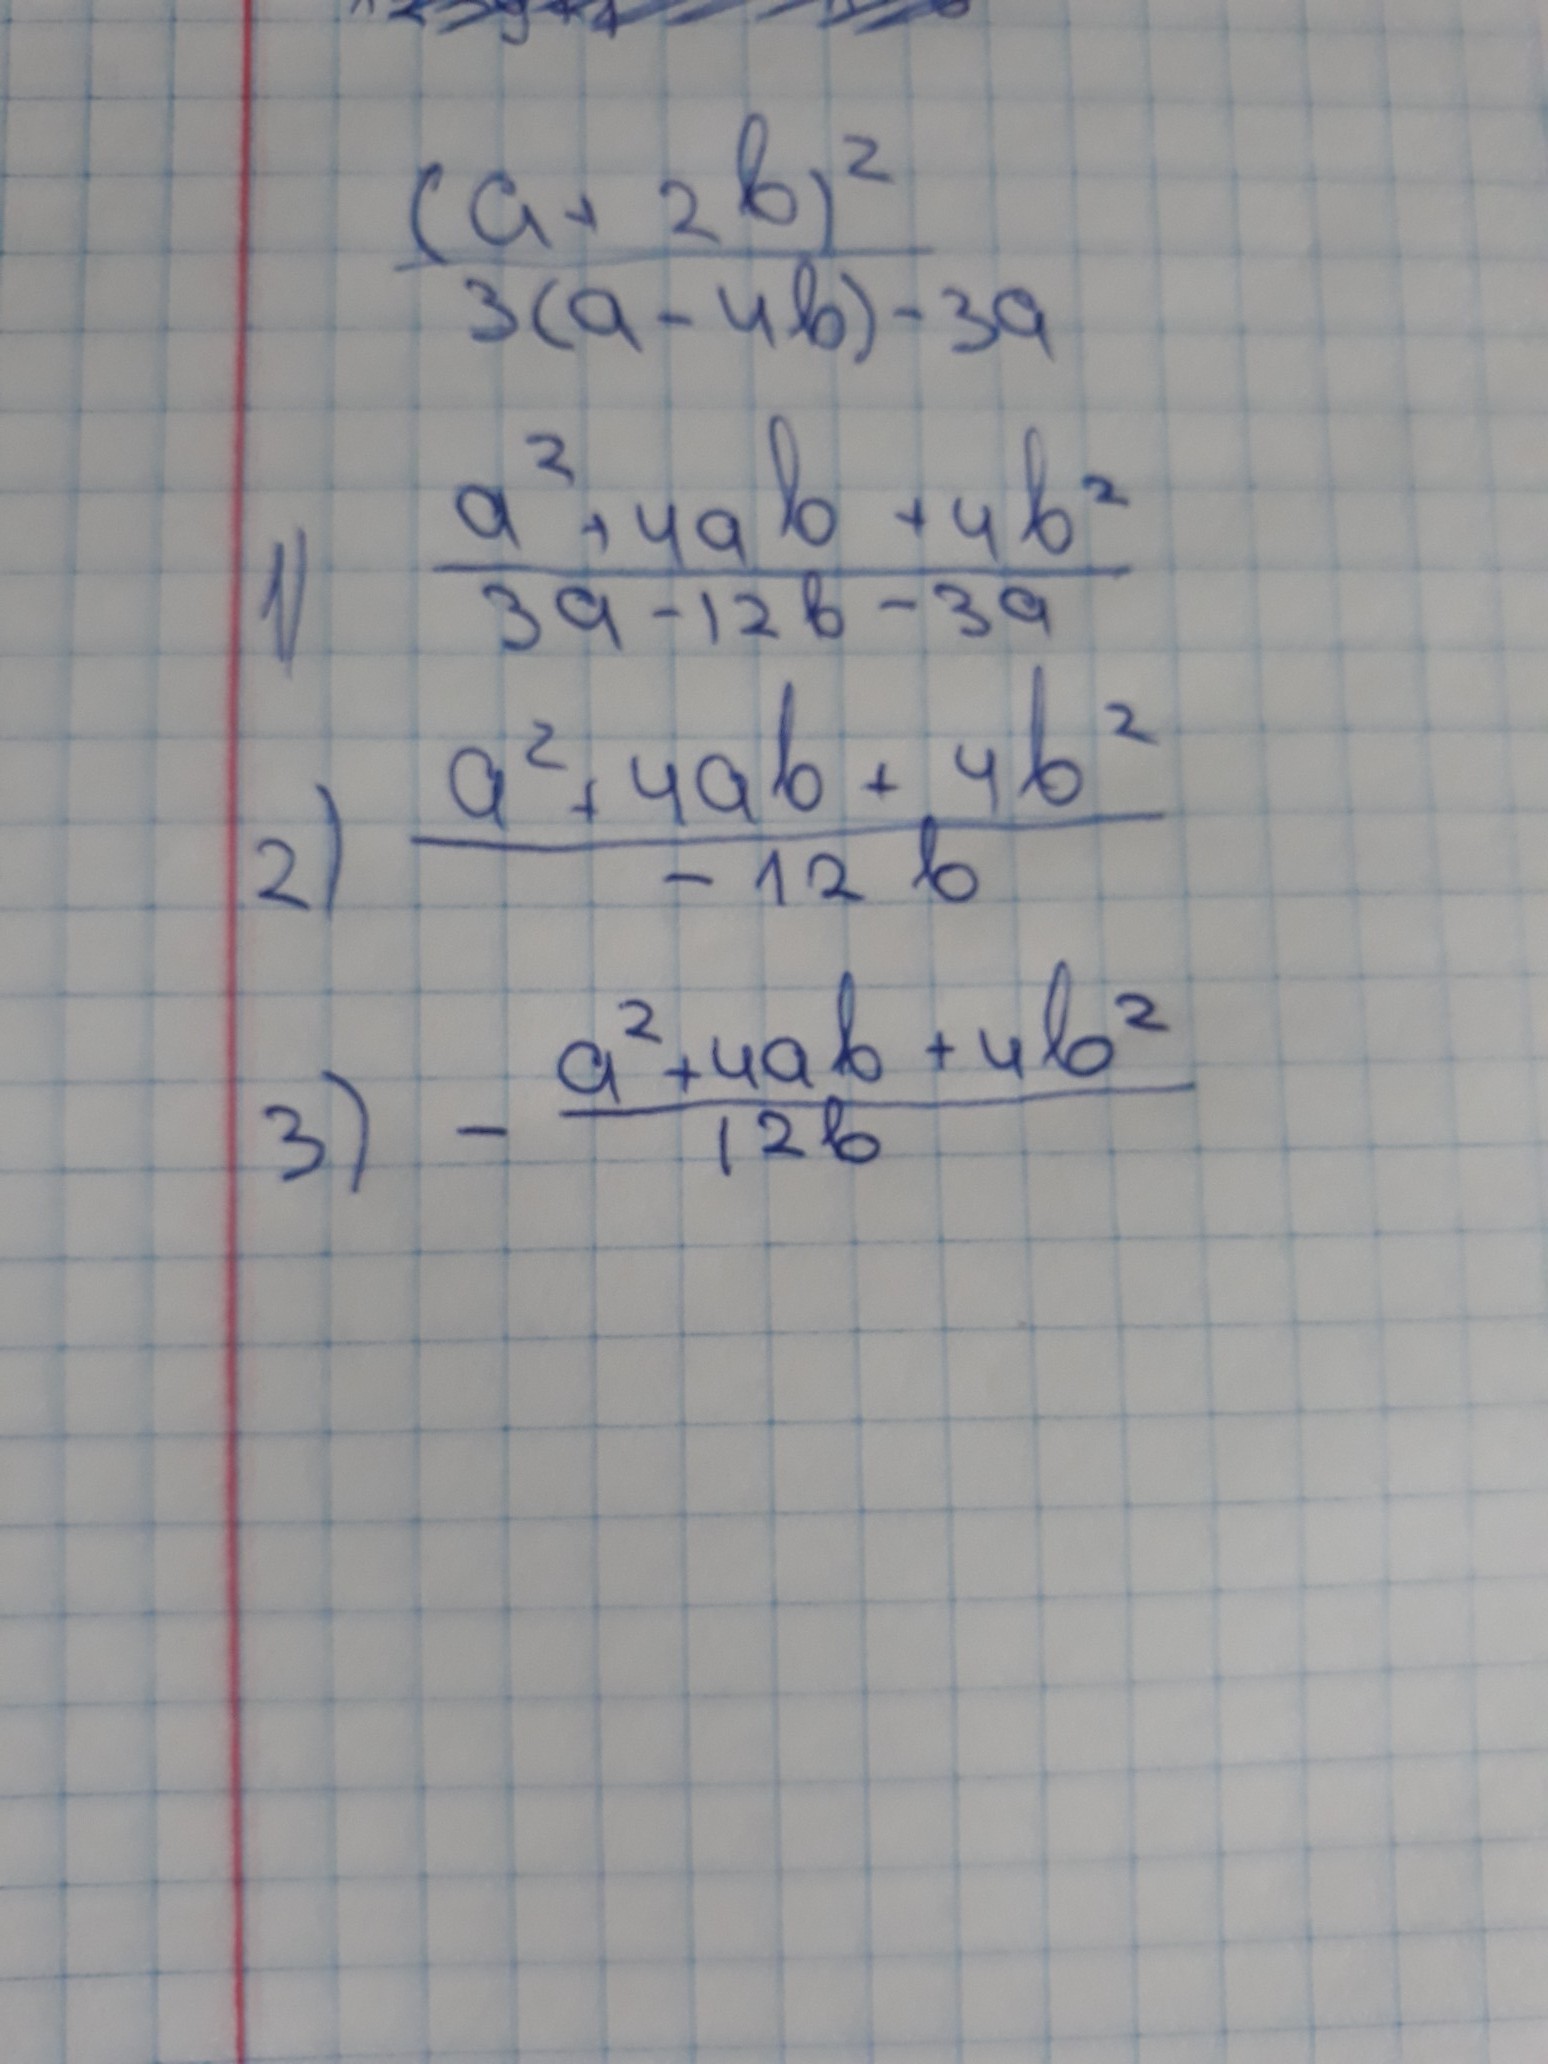 (a + 2b)²
3(a - 4b) - 3a
1) a² + 4ab + 4b²
3a - 12b - 3a
2) a² + 4ab + 4b²
- 12b
3) - a² + 4ab + 4b²
12b